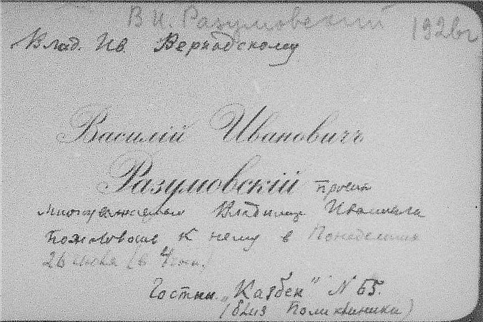 В И. Разумовский 1926г
Влад. Ив. Вернадскому
Василій Ивановичъ
Разумовскій просит
многоуважаемого Владимир Ивановича
пожаловать к нему в Понедельник
26 июля (в час.)
Гостин. „Казбек" N 65
(близ Поликлиники)